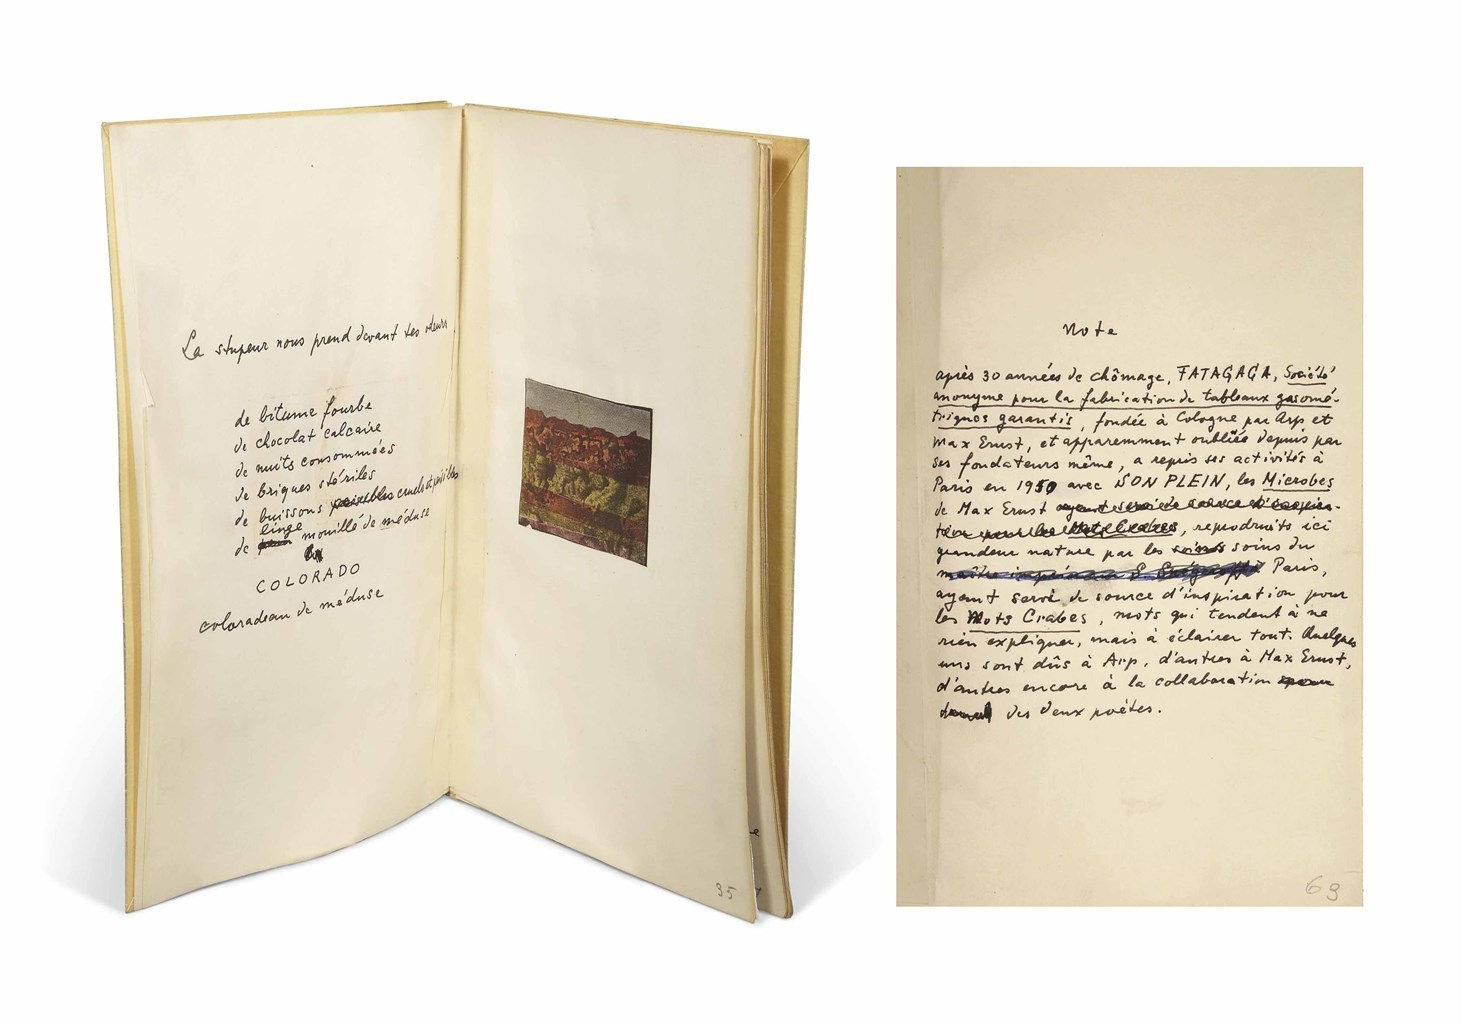 La stupeur nous prend devant tes odeurs
de bitume fourbe
de chocolat calcaire
de nuits consommées
de briques stériles
de buissons paisibles cruels et
linge
de mouillé de méduse
COLORADO
coloradeau de méduse
35
Note
après 30 années de chômage, FATAGAGA, Société
anonyme pour la fabrication de tableaux gasomé-
triques garantis, fondée à Cologne par Arp et
Max Ernst, et apparemment oubliée depuis par
ses fondateurs même, a repris ses activités à
Paris en 1950 avec SON PLEIN, les Microbes
de Max Ernst ayant servi de source d'inspira-
tion pour les Mots Crabes, reproduits ici
grandeur nature par les soins soins du
maître imprimeur Paris,
ayant servi de source d'inspiration pour
les Mots Crabes, mots qui tendent à ne
rien expliquer, mais à éclairer tout. Quelques
uns sont dûs à Arp, d'autres à Max Ernst,
d'autres encore à la collaboration
des deux poètes.
69